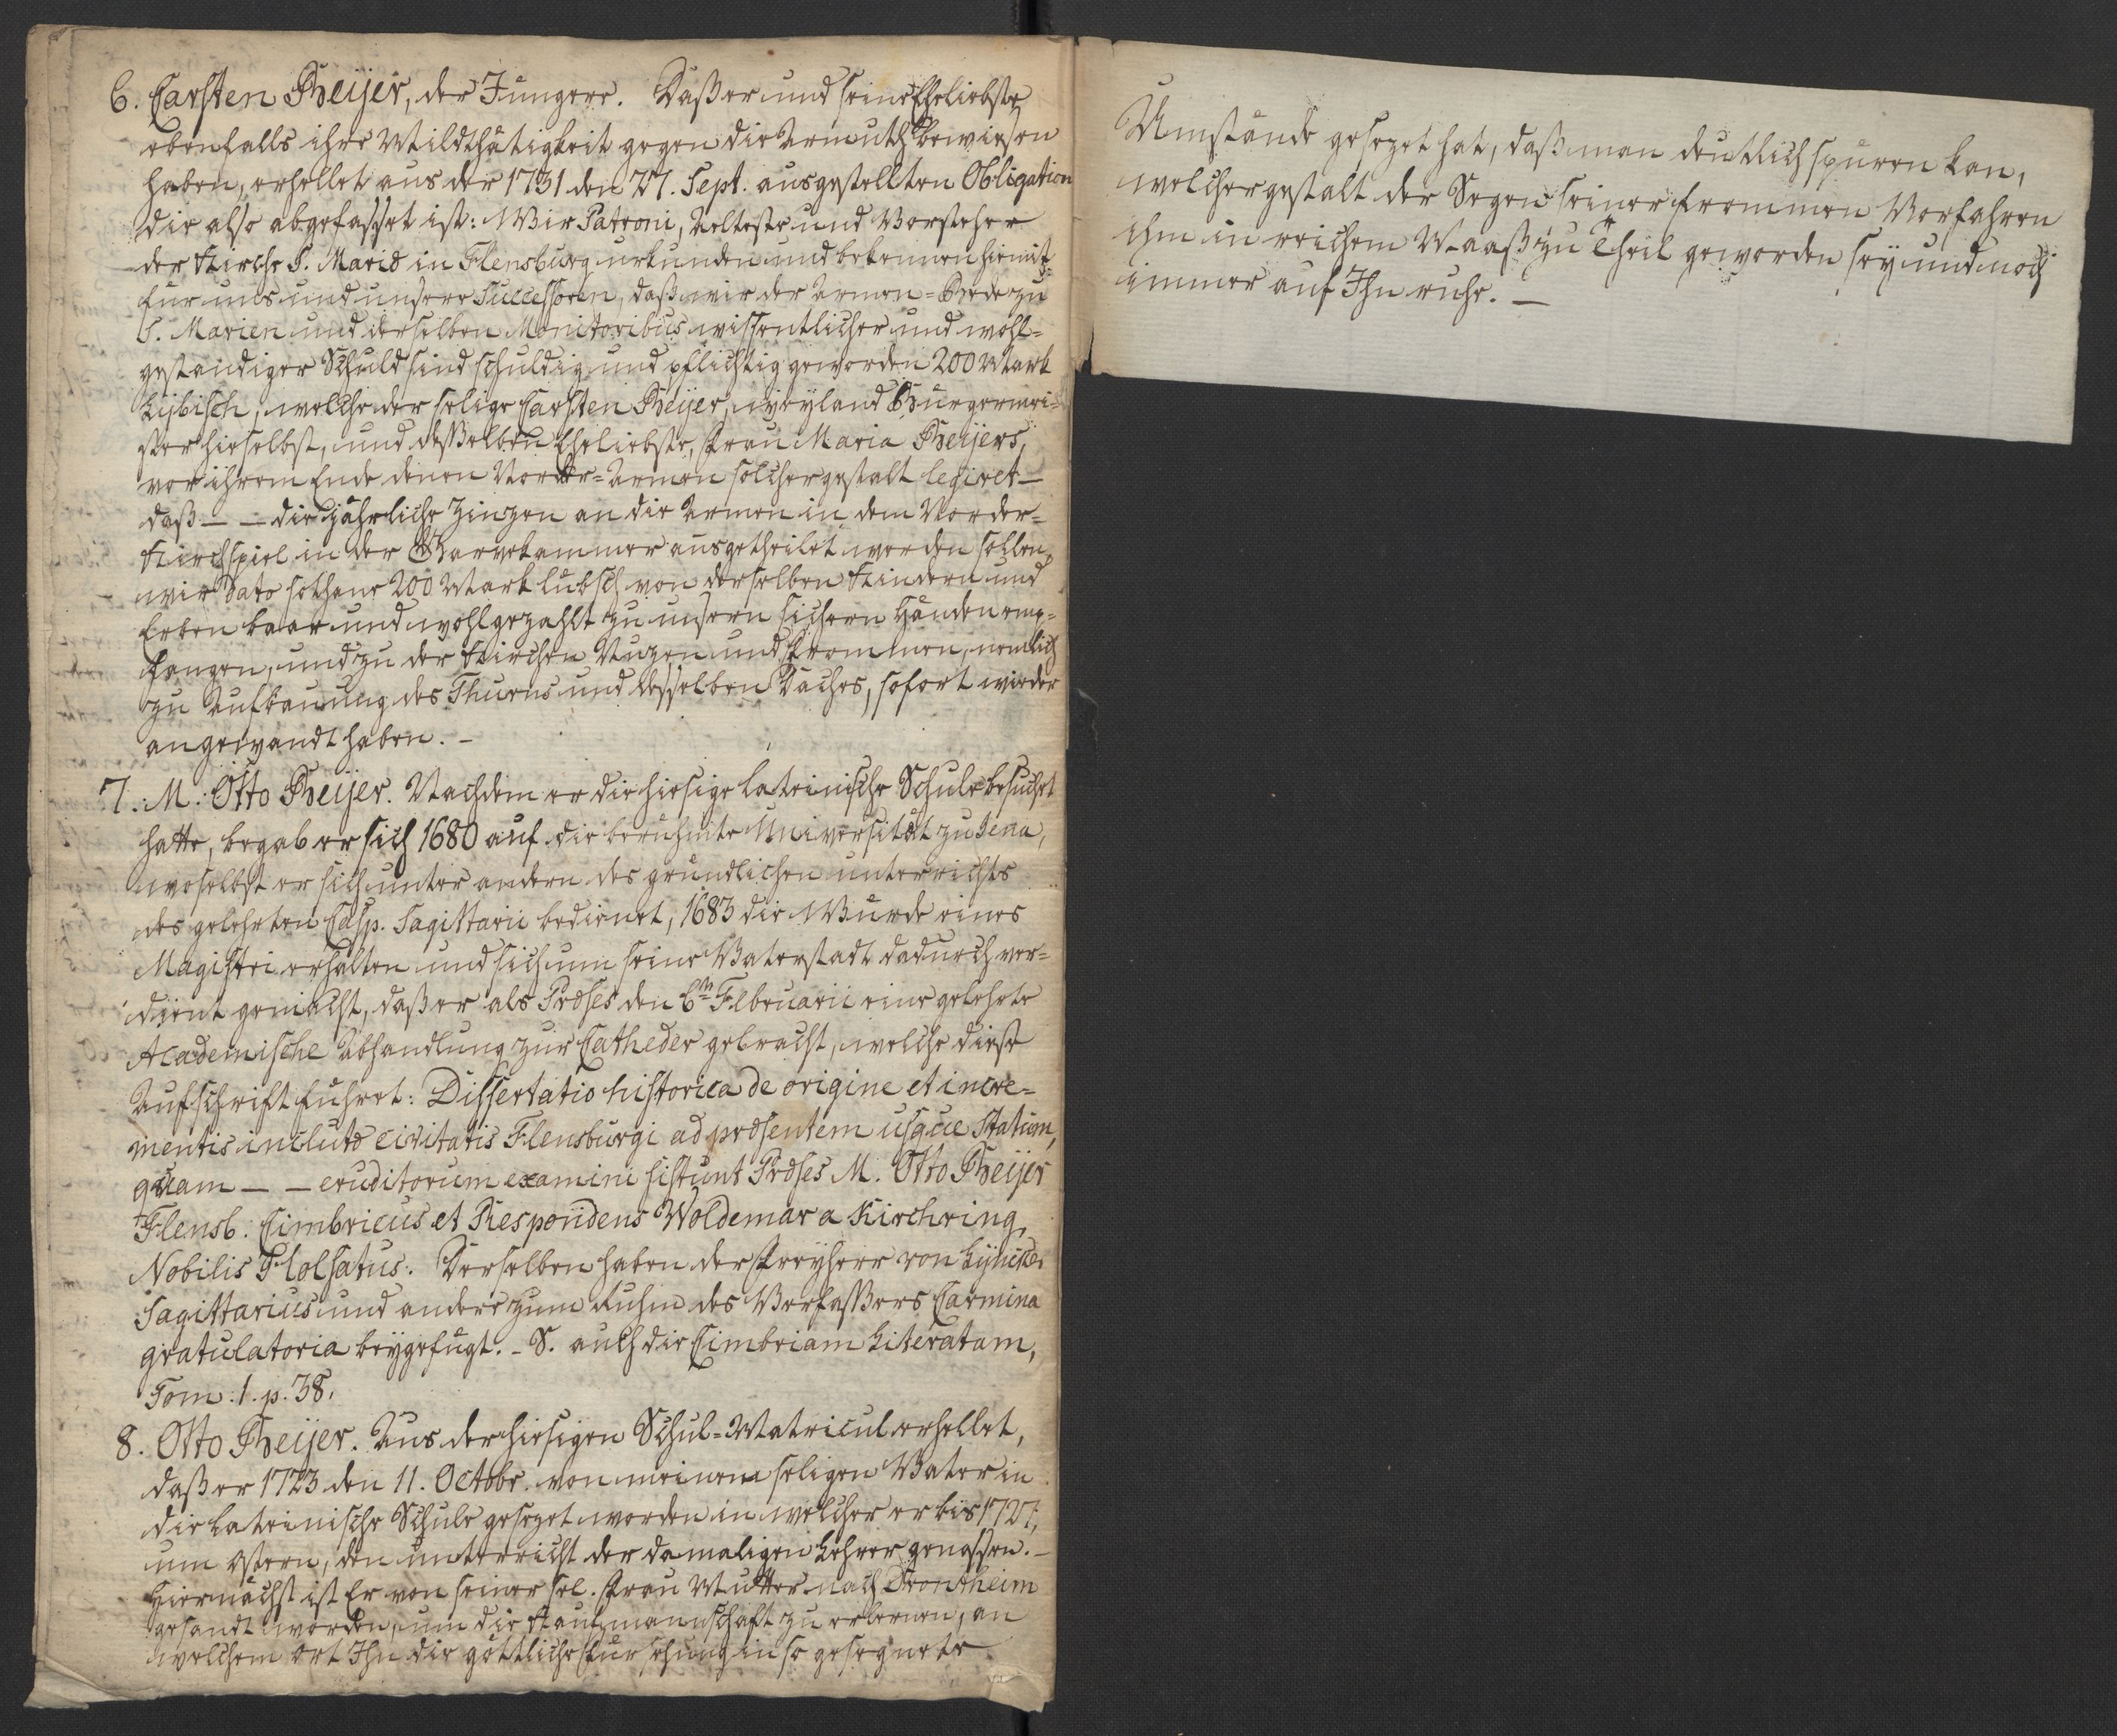 6. Carsten Beijer, der Jüngere. Daß er und seine Eheliebste
ebenfalls ihre Mildthätigkeit gegen die Armuth bewiesen
haben, erhellet aus der 1731 den 27. Sept. ausgestellten Obligation
die also abgefasset ist: Wir Patroni, Aelteste und Vorsteher
der Kirche S. Mariæ in Flensburg urkunden und bekennen hiemit
für uns und unsere Successoren, daß wir der Armen=Bede zu
S. Marien und derselben Monitoribus wissentlicher und wohl=
geständiger Schuld sind schuldig und pflichtig geworden 200 Mark
Lybisch, welche der selige Carsten Beijer, weyland Bürgermei=
ster hieselbst, und deßelben Eheliebste, Frau Maria Beijers,
vor ihrem Ende denen Vorder=Armen solchergestalt legiret –
daß – – die jährliche Zinzen an die Armen in dem Vorder=
Kirchspiel in der Garvekammer ausgetheilet werden sollen,
wir dato sothane 200 Mark lübsch von derselben Kindern und
Erben baar und wohlgezahlt zu unsern sichern Händen emp=
fangen, und zu der Kirchen Nuzen und Frommen, nemlich
zu Aufbauung des Thurns und desselben Daches, sofort wieder
angewandt haben. –
7. M. Otto Beijer. Nachdem er die hiesige lateinische Schule besuchet
hatte, begab er sich 1680 auf die berühmte Universität zu Jena,
woselbst er sich unter andern des gründlichen unterrichts
des gelehrten Casp. Sagittarii bedienet, 1683 die Würde eines
Magistri erhalten und sich um seine Vaterstadt dadurch ver=
dient gemacht, daß er als Præses den 6ten Februarii eine gelehrte
Academische Abhandlung zur Catheder gebracht, welche diese
Aufschrift führet: Dissertatio historica de origine et incre=
mentis inclutæ civitatis Flensburgi ad præsentem usque statum,
quam – – eruditorum examini sistunt Præses M. Otto Beijer
Flensb. Cimbricus et Respondens Woldemar a Kirchring,
Nobilis Holsatus. Derselben haben der Freyherr von Lyncker
Sagittarius und andere zum Ruhm des Verfaßers Carmina
gratulatoria beygefügt. – S. auch die Cimbriam Literatam,
Tom. 1. p. 38.
8. Otto Beijer. Aus der hiesigen Schul=Matricul erhellet,
daß er 1723 den 11. Octobr. von meinem seligen Vater in
die lateinische Schule gesezet worden in welcher er bis 1727,
um Ostern, den unterricht der damaligen Lehrer genossen. –
Hiernächst ist Er von seiner sel. Frau Mutter nach Drontheim
gesandt worden, um die Kaufmannschaft zu erlernen, an
welchem Ort Ihn die göttliche Fürsehung in so gesegnete
Umstände gesezet hat, daß man deutlich spüren kan,
welchergestalt der Segen seiner frommen Vorfahren
ihm in reichem Maaß zu Theil geworden sey und noch
immer auf Ihn ruhe. –